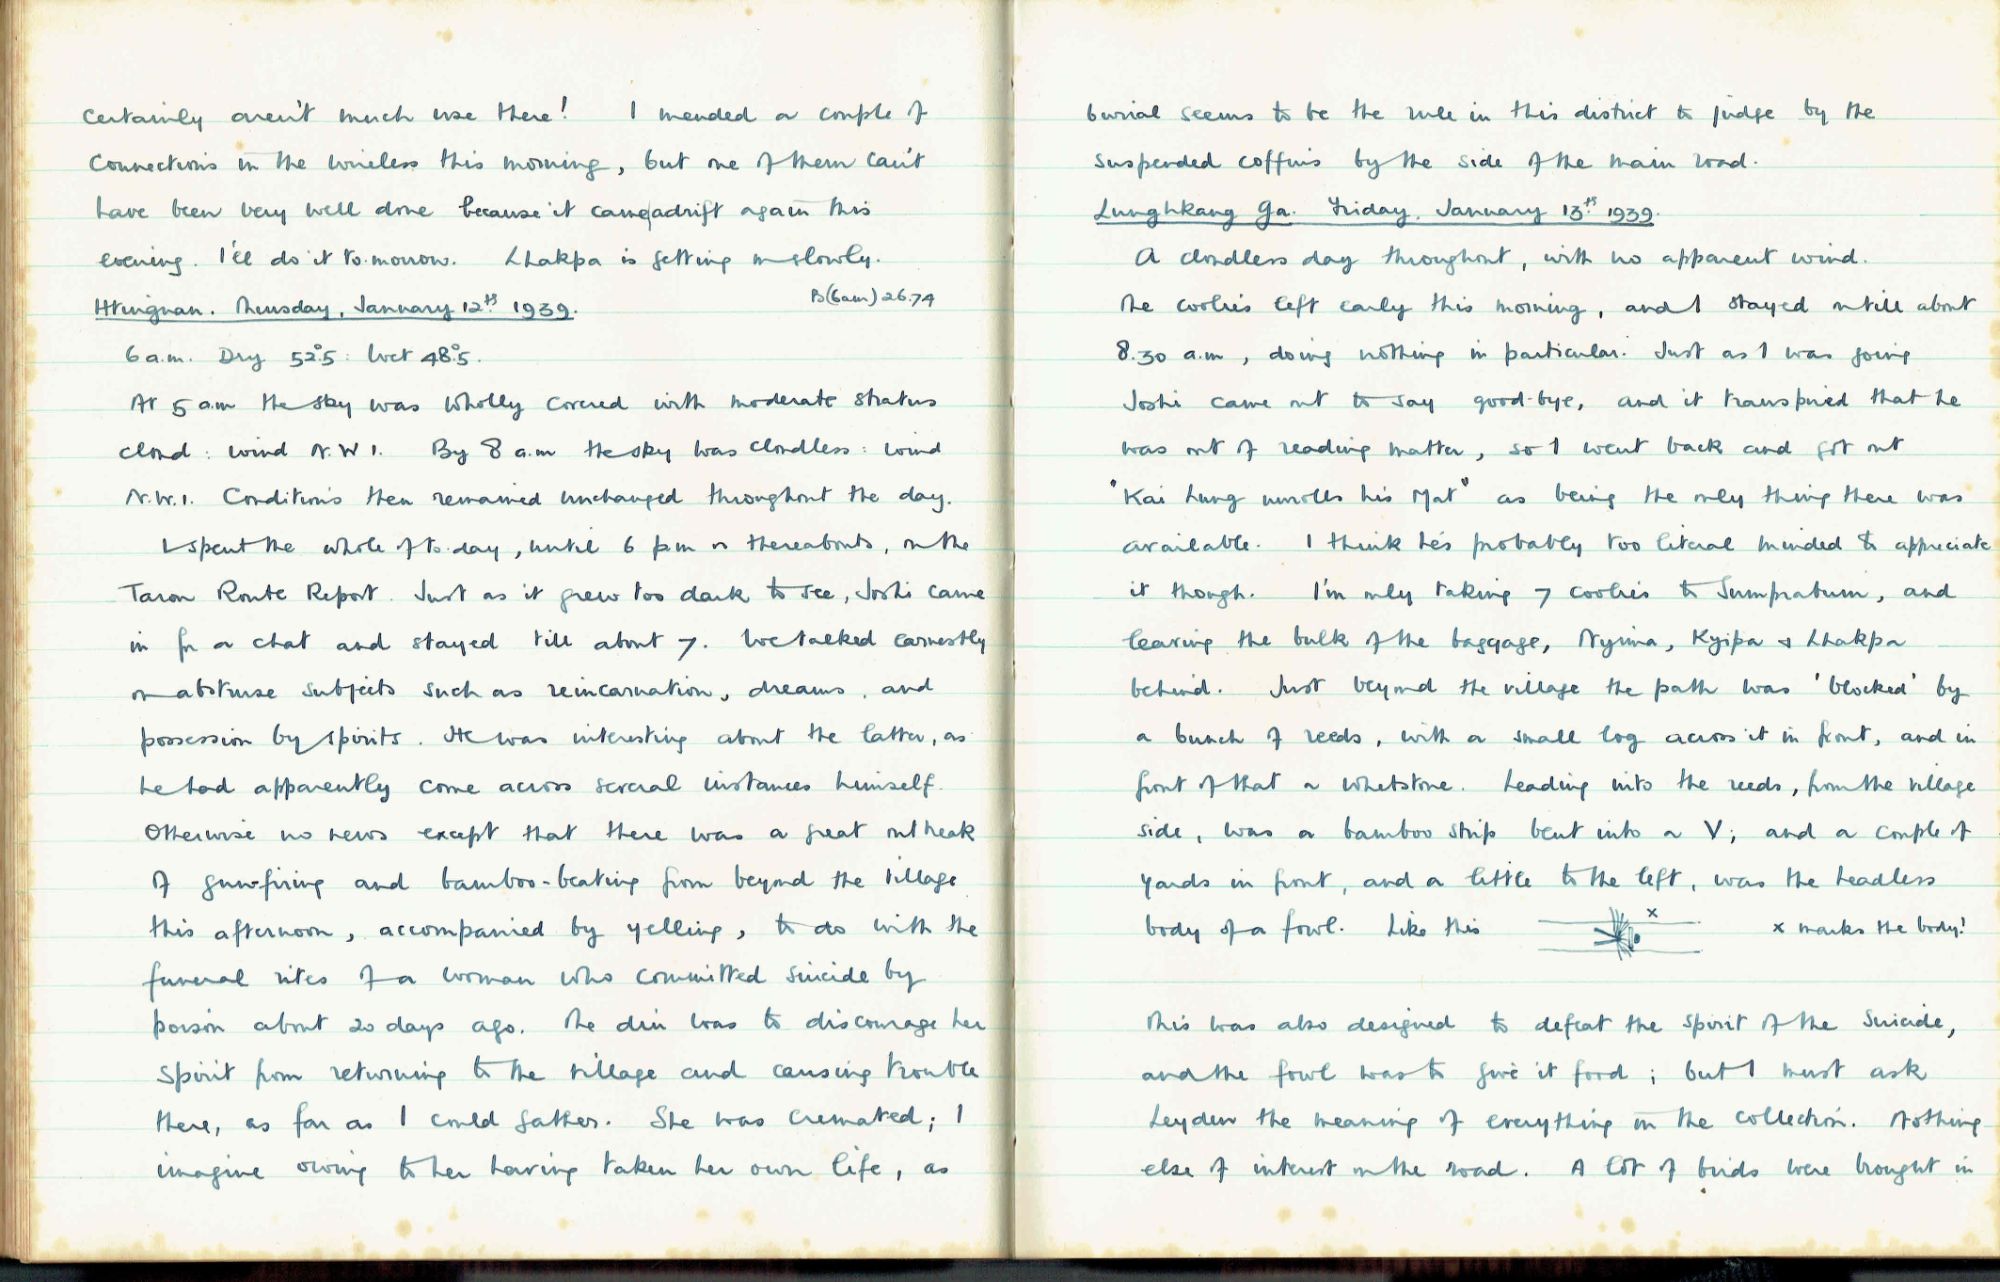 certainly aren't much use there! I mended a couple of
connections in the wireless this morning, but one of them can't
have been very well done because it came adrift again this
evening. I'll do it to-morrow. Lhakpa is getting on slowly.
Htingnan. Thursday, January 12th 1939. B(6am) 26.74
6 a.m. Dry 52°.5 : Wet 48°.5.
At 5 a.m the sky was wholly covered with moderate stratus
cloud : wind N.W 1. By 8 a.m the sky was cloudless : wind
N.W.1. Conditions then remained unchanged throughout the day.
I spent the whole of to-day, until 6 pm or thereabouts, on the
Taron Route Report. Just as it grew too dark to see, Joshi came
in for a chat and stayed till about 7. We talked earnestly
on abstruse subjects such as reincarnation, dreams, and
possession by spirits. He was interesting about the latter, as
he had apparently come across several instances himself.
Otherwise no news except that there was a great outbreak
of gun-firing and bamboo-beating from beyond the village
this afternoon, accompanied by yelling, to do with the
funeral rites of a woman who committed suicide by
poison about 20 days ago. The din was to discourage her
spirit from returning to the village and causing trouble
there, as far as I could gather. She was cremated; I
imagine owing to her having taken her own life, as
burial seems to be the rule in this district to judge by the
suspended coffins by the side of the main road.
Lunghkang Ga. Friday, January 13th 1939.
A cloudless day throughout, with no apparent wind.
The coolies left early this morning, and I stayed on till about
8.30 a.m, doing nothing in particular. Just as I was going
Joshi came out to say good-bye, and it transpired that he
was out of reading matter, so I went back and got out
"Kai Lung unrolls his Mat" as being the only thing there was
available. I think he's probably too literal minded to appreciate
it though. I'm only taking 7 coolies to Sumprabum, and
leaving the bulk of the baggage, Nyima, Kyipa & Lhakpa
behind. Just beyond the village the path was 'blocked' by
a bunch of reeds, with a small log across it in front, and in
front of that a whetstone. Leading into the reeds, from the village
side, was a bamboo strip bent into a V; and a couple of
yards in front, and a little to the left, was the headless
body of a fowl. Like this x x marks the body!
This was also designed to defeat the spirit of the suicide,
and the fowl was to give it food; but I must ask
Leyden the meaning of everything in the collection. Nothing
else of interest on the road. A lot of birds were brought in